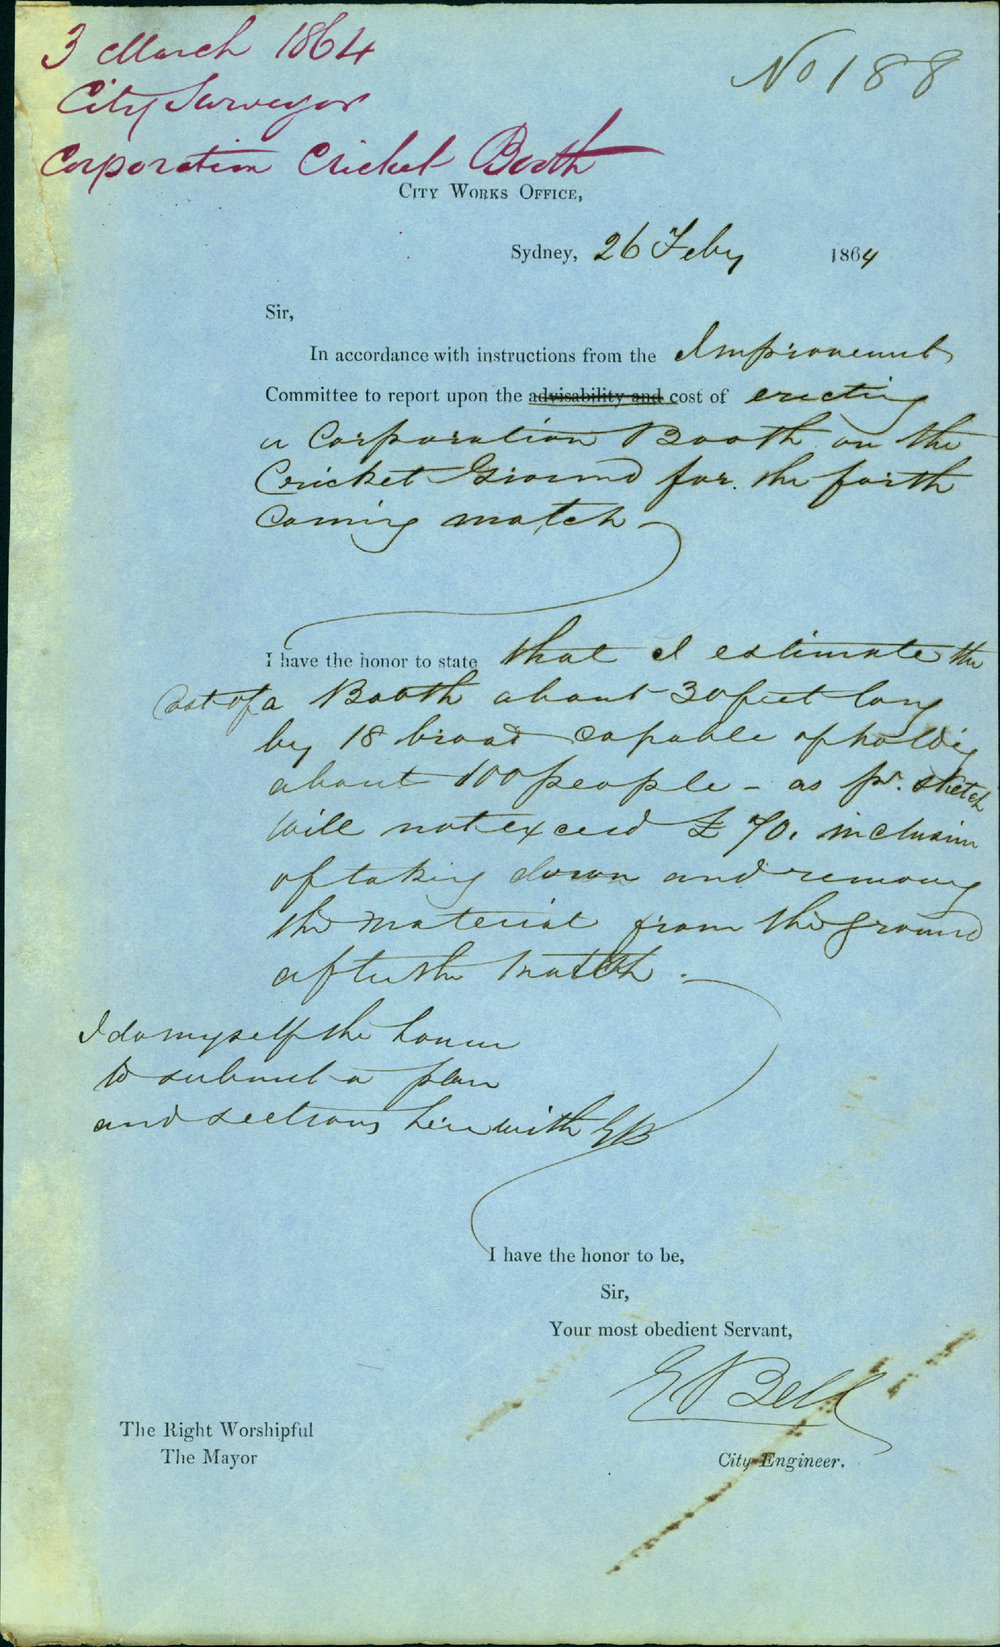 3 March 1864
No 188
City Surveyor
Corporation Cricket Booth
City Works Office,
Sydney, 26 Feby 1864
Sir,
In accordance with instructions from the Improvement
Committee to report upon the advisability and cost of erecting
a Corporation Booth on the
Cricket Ground for the forth
coming match
I have the honor to state that I estimate the
Cost of a Booth about 30 feet long
by 18 broad capable of holdig
about 100 people - as pr. sketch
will not exceed £70. inclusive
of taking down and removing
the material from the ground
after the match.
I do myself the honor
to submit a plan
and sections herewith EB
I have the honor to be,
Sir,
Your most obedient Servant,
E Bell
The Right Worshipful
The Mayor
City Engineer.